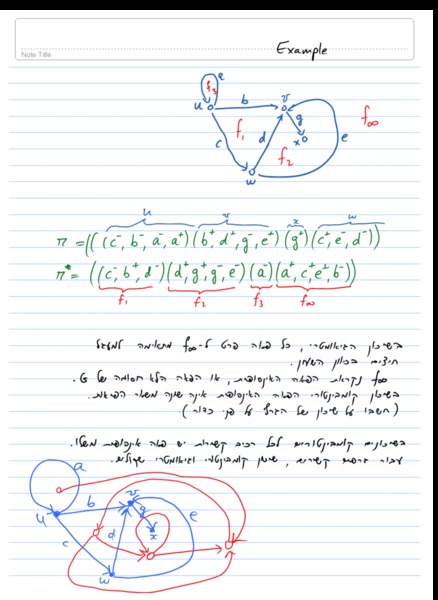 Example
Note Title
a
f₃
u
b
v
f∞
f₁
g
c
d
x
e
f₂
w
u v x w
π = ((c⁻, b⁻, a⁻, a⁺)(b⁺, d⁺, g⁻, e⁺)(g⁺)(c⁺, e⁻, d⁻))
π* = ((c⁻, b⁺, d⁻)(d⁺, g⁺, g⁻, e⁻)(a⁻)(a⁺, c⁺, e⁺, b⁻))
f₁ f₂ f₃ f∞
בשיכון הגיאומטרי, כל פאה פרט ל-f∞ מתאימה למעגל
חיצים בכוון השעון.
f∞ נקראת הפאה האינסופית, או הפאה הלא חסומה של G.
בשיכון קומבינטורי הפאה האינסופית אינה שונה משאר הפאות.
(חשבו על שיכון של הגרף על פני כדור)
בשיכונים קומבינטוריים לכל רכיב קשירות יש פאה אינסופית משלו.
עבור גרפים קשירים, שיכון קומבינטורי וגיאומטרי שקולים.
a
b
v
g
e
u
d
x
c
w